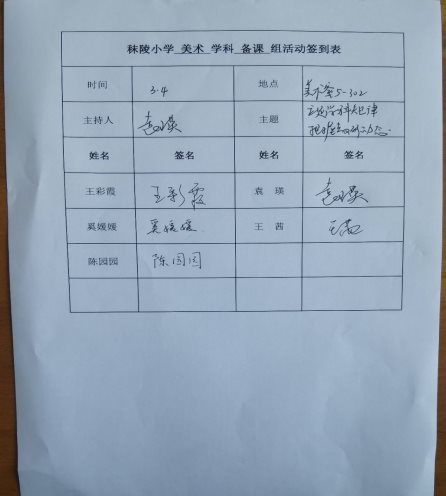 秣陵小学 美术 学科 备课 组活动签到表
时间 3.4 地点 美术室5-302
主持人 袁瑛 主题
姓名 签名 姓名 签名
王彩霞 王彩霞 袁瑛 袁瑛
奚媛媛 奚媛媛 王茜 王茜
陈园园 陈园园